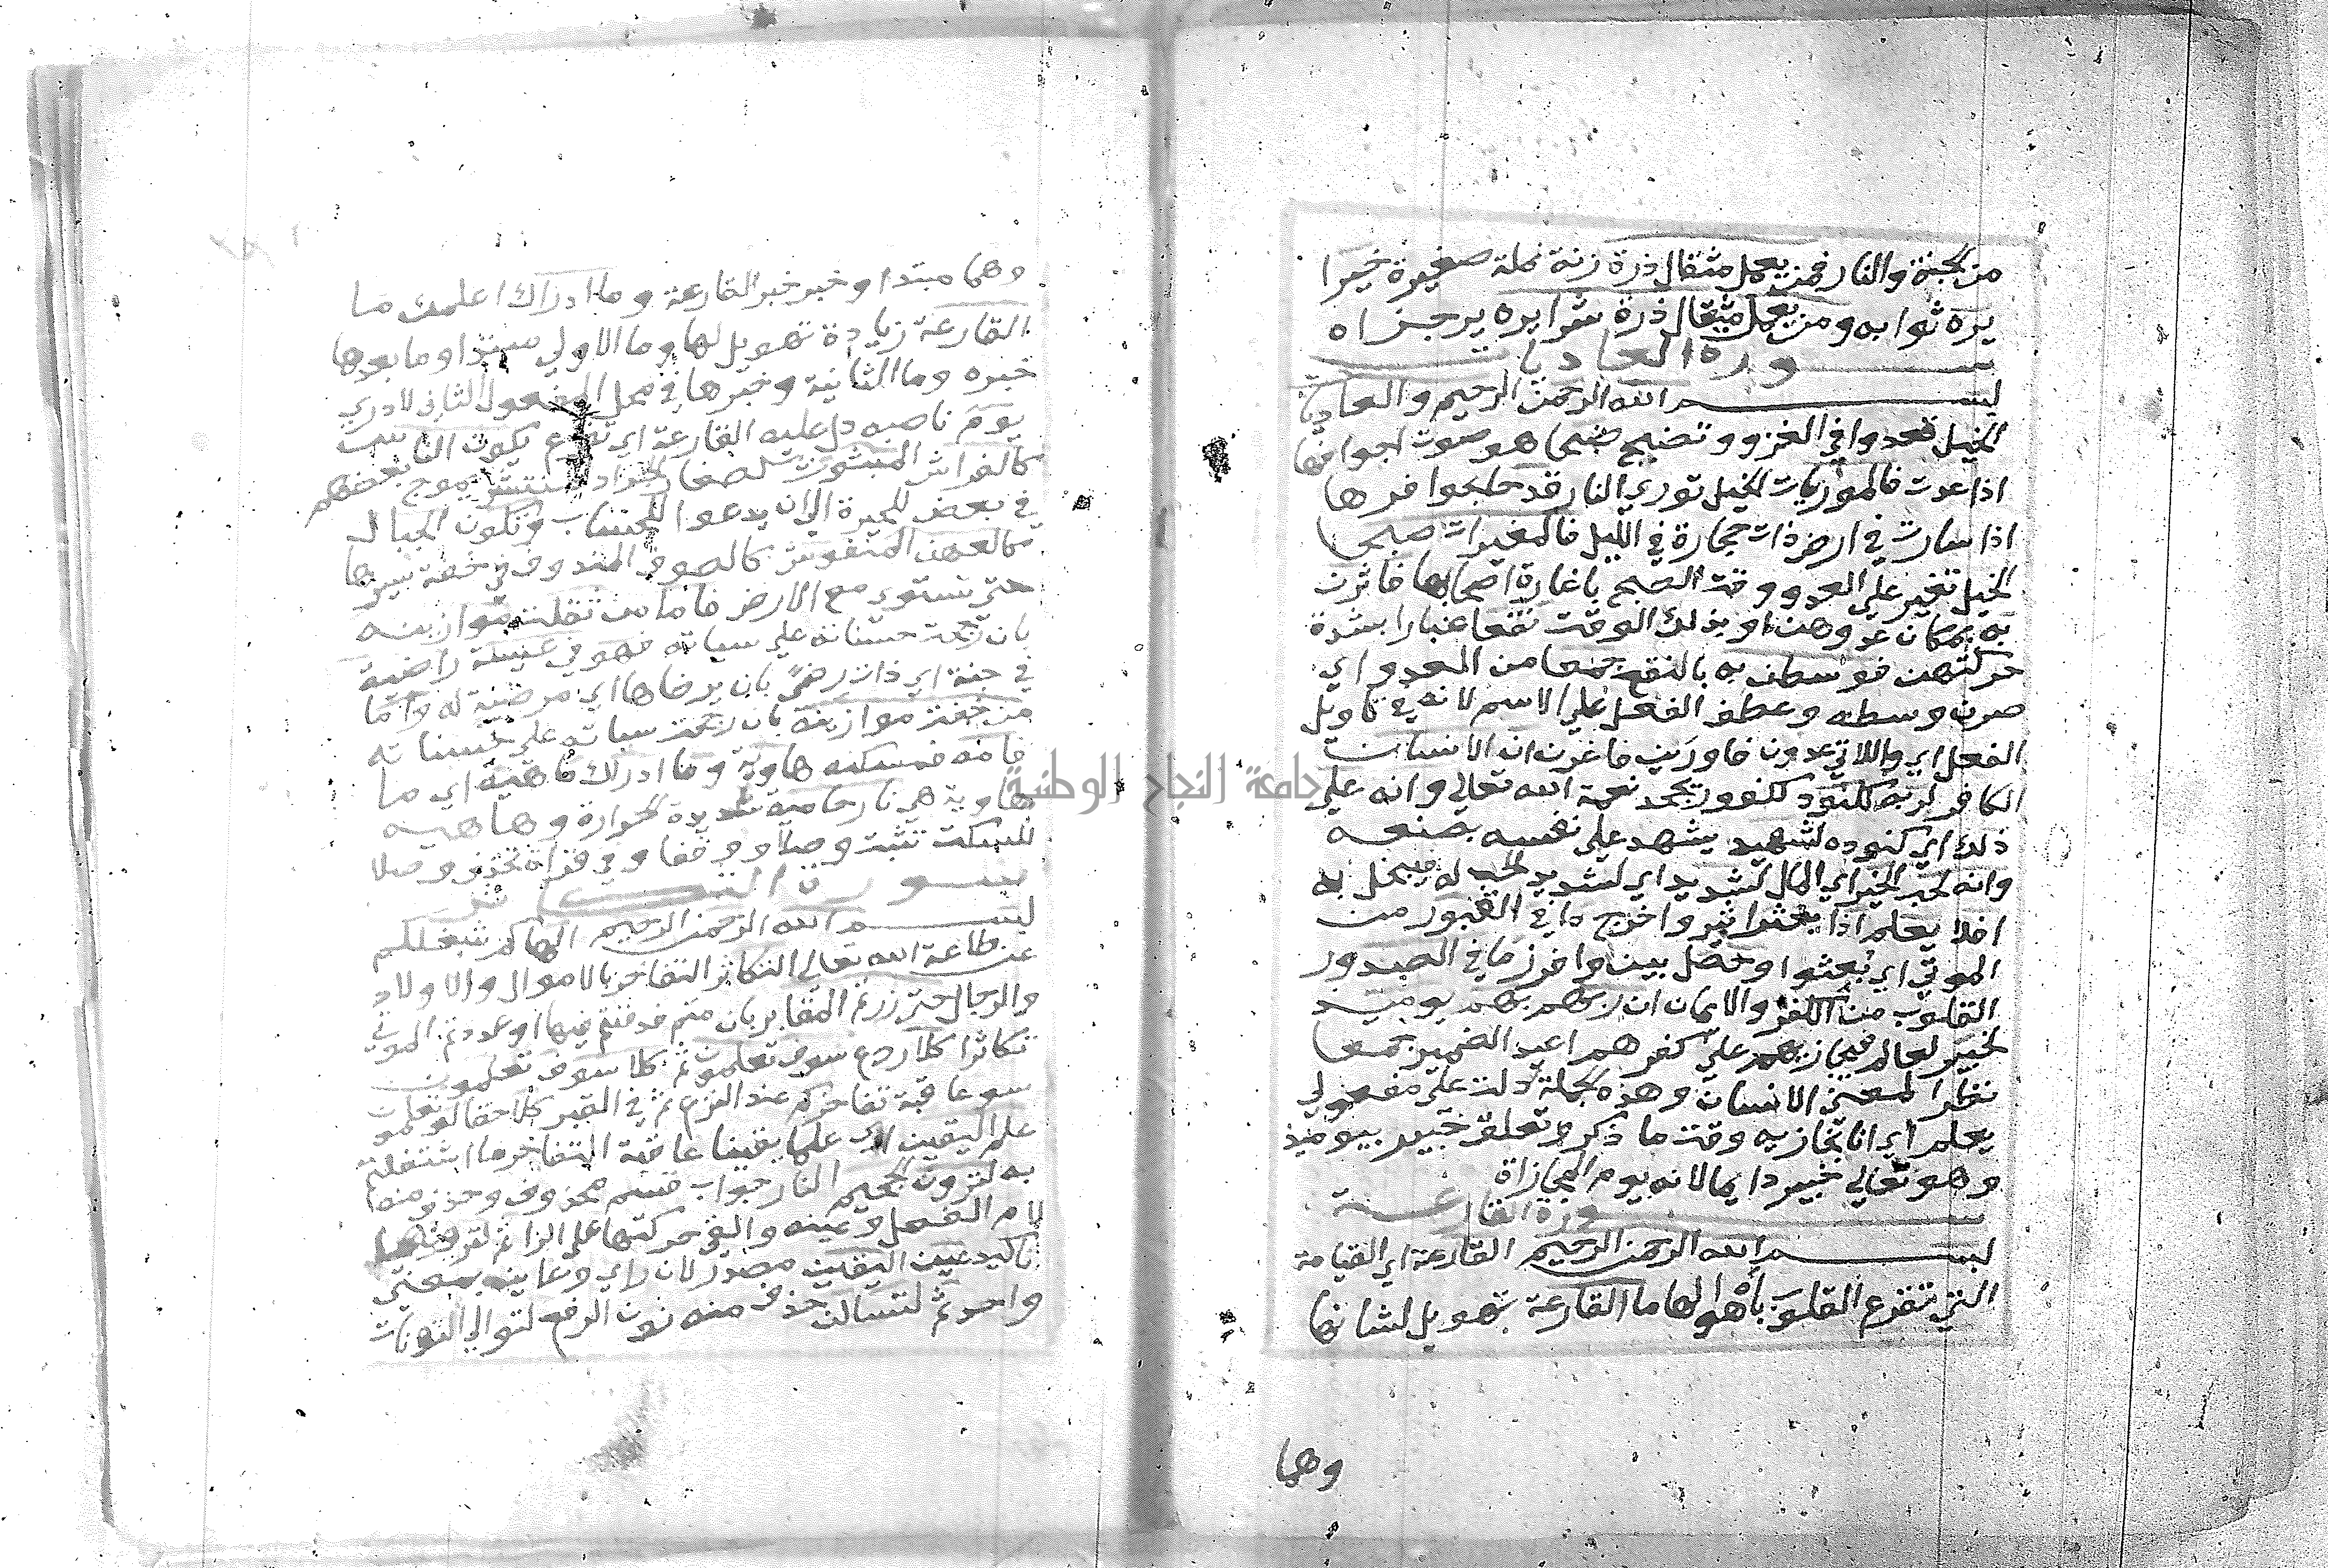 من الجنة والنار فمن يعمل مثقال ذرة زنة نملة صغيرة خيرا
يره ثوابه ومن يعمل مثقال ذرة شرا يره ير جزاه
سورة العاديا
بسم الله الرحمن الرحيم والعاديات
الخيل تعدوا في الغزو وتضبح ضبحا هو صوت اجوافها
اذا عدت فالموريات الخيل توري النار قدحا بحوافرها
اذا سارت في ارض ذات حجارة في الليل فالمغيرات صبحا
الخيل تغير علي العدو وقت الصبح باغارة اصحابها فاثرن
به بمكان عدوهن او بذلك الوقت نقعا غبارا بشدة
حركتهن فوسطن به بالنقع جمعا من العدو اي
صرن وسطه وعطف الفعل علي الاسم لانه في تاويل
الفعل اي واللاتي عدون فاورين فاغرن ان الانسان
الكافر لربه لكنود لكفور يجحد نعمة الله تعالي وانه علي
ذلك اي كنوده لشهيد يشهد علي نفسه بصنعه
وانه لحب الخير اي المال لشديد اي لشديد الحب له فيبخل به
افلا يعلم اذا بعثر اثير واخرج ما في القبور من
الموتي اي بعثوا وحصل بين وافرز ما في الصدور
القلوب من الكفر والايمان ان ربهم بهم يوميد
لخبير لعالم فيجازيهم علي كفرهم اعيد الضمير جمعا
نظرا لمعني الانسان وهذه الجملة دلت علي مفعولي
يعلم اي انا نجازيه وقت ما ذكر وتعلق خبير بيوميذ
وهو تعالي خبير دايما لانه يوم المجازاة
سورة القارعة
بسم الله الرحمن الرحيم القارعة اي القيامة
التي تقرع القلوب باهوالها ما القارعة تهويل لشانها
وهما
وهما مبتدا وخبر خبر القارعة وما ادراك اعلمك ما
القارعة زيادة تهويل لها وما الاولي مبتدا وما بعدها
خبره وما الثانية وخبرها في محل المفعول الثاني لادري
يوم ناصبه دل عليه القارعة اي تقرع يكون الناس
كالفراش المبثوث كصغار الجراد المنتشر يموج بعضهم
في بعض للحيرة الي ان يدعوا للحساب وتكون الجبال
كالعهن المنفوش كالصوف المندوف في خفة سيرها
حتي تستوي مع الارض فاما من ثقلت موازينه
بان رجحت حسناته علي سياته فهو في عيشة راضية
في جنة اي ذات رضي بان يرضاها اي مرضية له واما
من خفت موازينه بان رجحت سياته علي حسناته
فامه فمسكنه هاوية وما ادراك ماهيه اي ما
هاوية هي نار حامية شديدة الحرارة وها هيه
للسكت تثبت وصلا ووقفا وفي قراة تحذف وصلا
سورة التكاثر
بسم الله الرحمن الرحيم الهاكم شغلكم
عن طاعة الله تعالي التكاثر التفاخر بالاموال والاولاد
والرجال حتي زرتم المقابر بان متم فدفنتم فيها او عددتم الموتي
تكاثرا كلا ردع سوف تعلمون ثم كلا سوف تعلمون
سو عاقبة تفاخركم عند النزع ثم في القبر كلا حقا لو تعلمون
علم اليقين اي علما يقينا عاقبة التفاخر ما اشتغلتم
به لترون الجحيم النار جواب قسم محذوف وحذف منه
لام الفعل وعينه والقي حركتها علي الرا ثم لترونها
تاكيد عين اليقين مصدر لان راي وعاين بمعني
واحد ثم لتسالن حذف منه نون الرفع لتوالي النونات
جامعة النجاح الوطنية